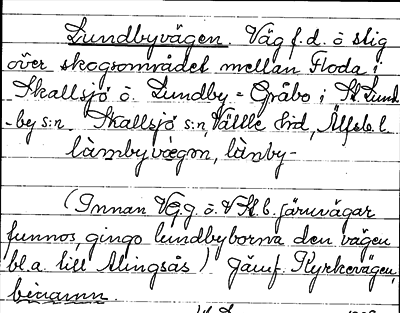 Lundbyvägen. Väg f.d. o stig
över skogsområdet mellan Floda i
Skallsjö o. Lundby - Gråbo i St. Lund-
by s:n. Skallsjö s:n, Vättle hrd, Älfsb. l.
làmbyvægen, lànby-
(Innan V.G.g. o. V St. b. järnvägar
funnos, gingo lundbyborna den vägen
bl.a. till Alingsås) Jämf. Kyrkevägen,
binamn.